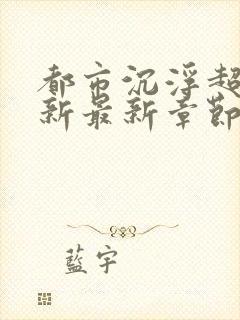 都市沉浮超
新最新章節
藍宇